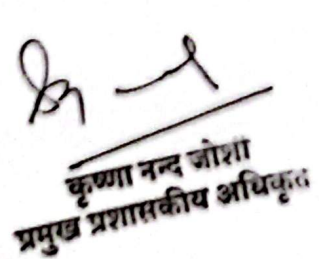 कृष्णा नन्द जोशी
प्रमुख प्रशासकीय अधिकृत